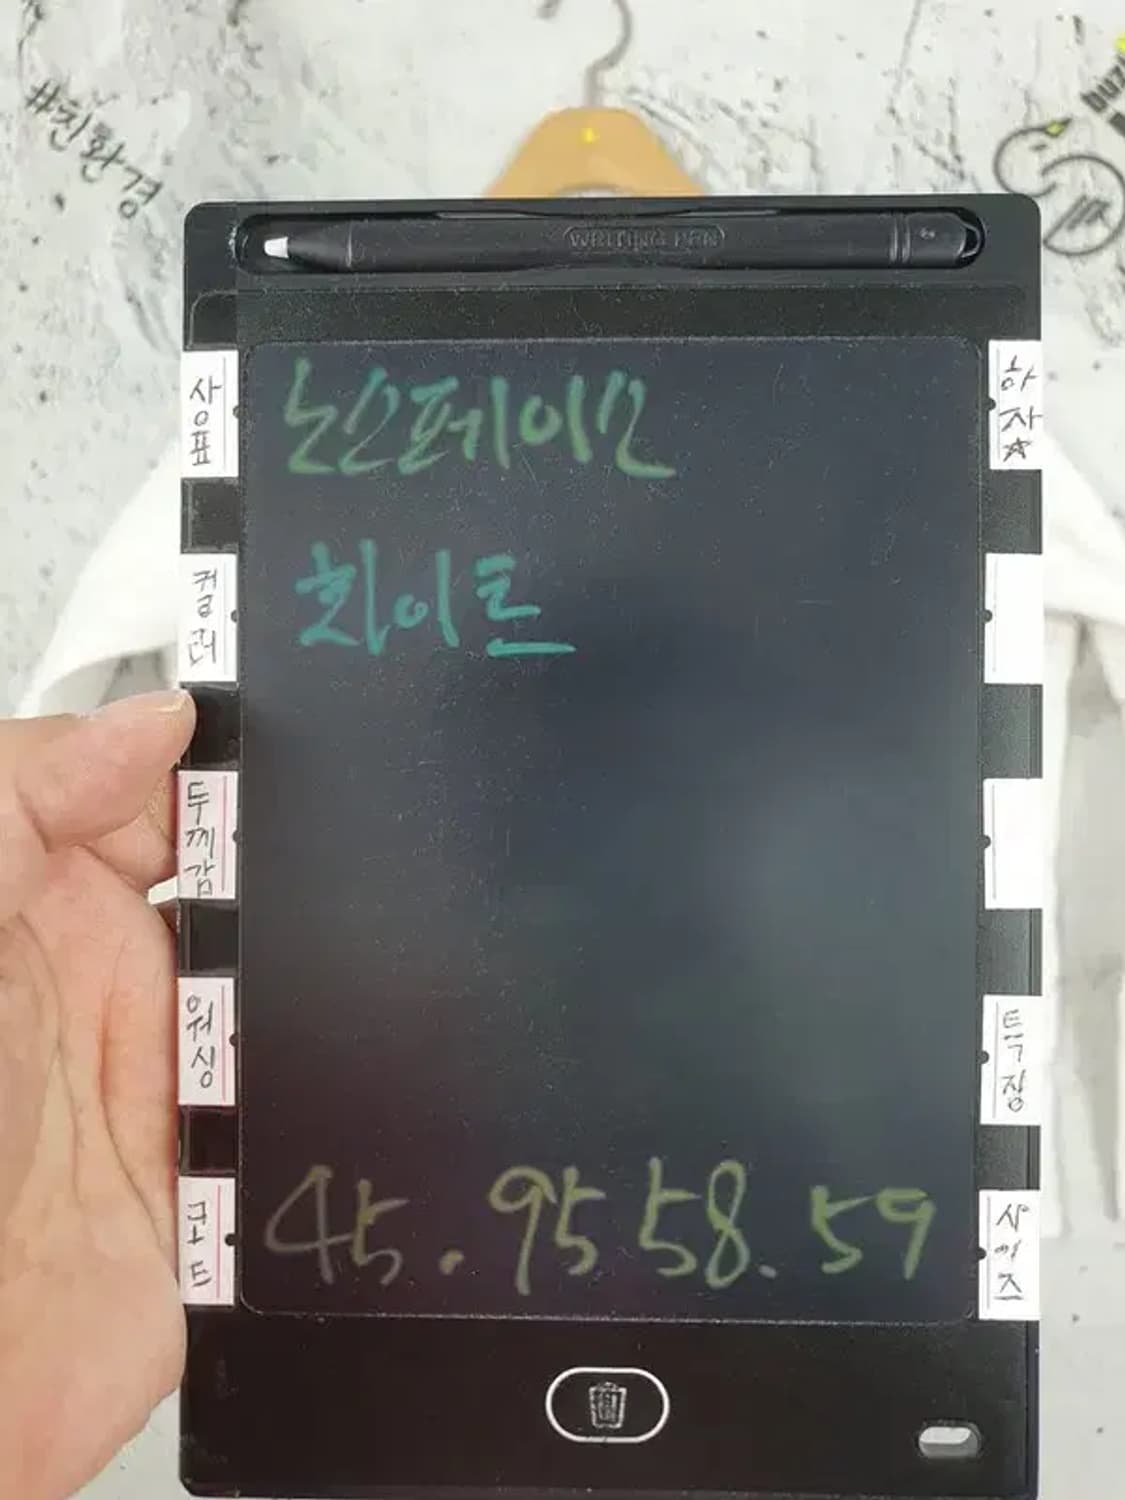 #친환경
buzz
WRITING PEN
사용표
하자☆
노스페이스
컬러
화이트
두께감
워싱
특징
코드
사이즈
45.95 58.59